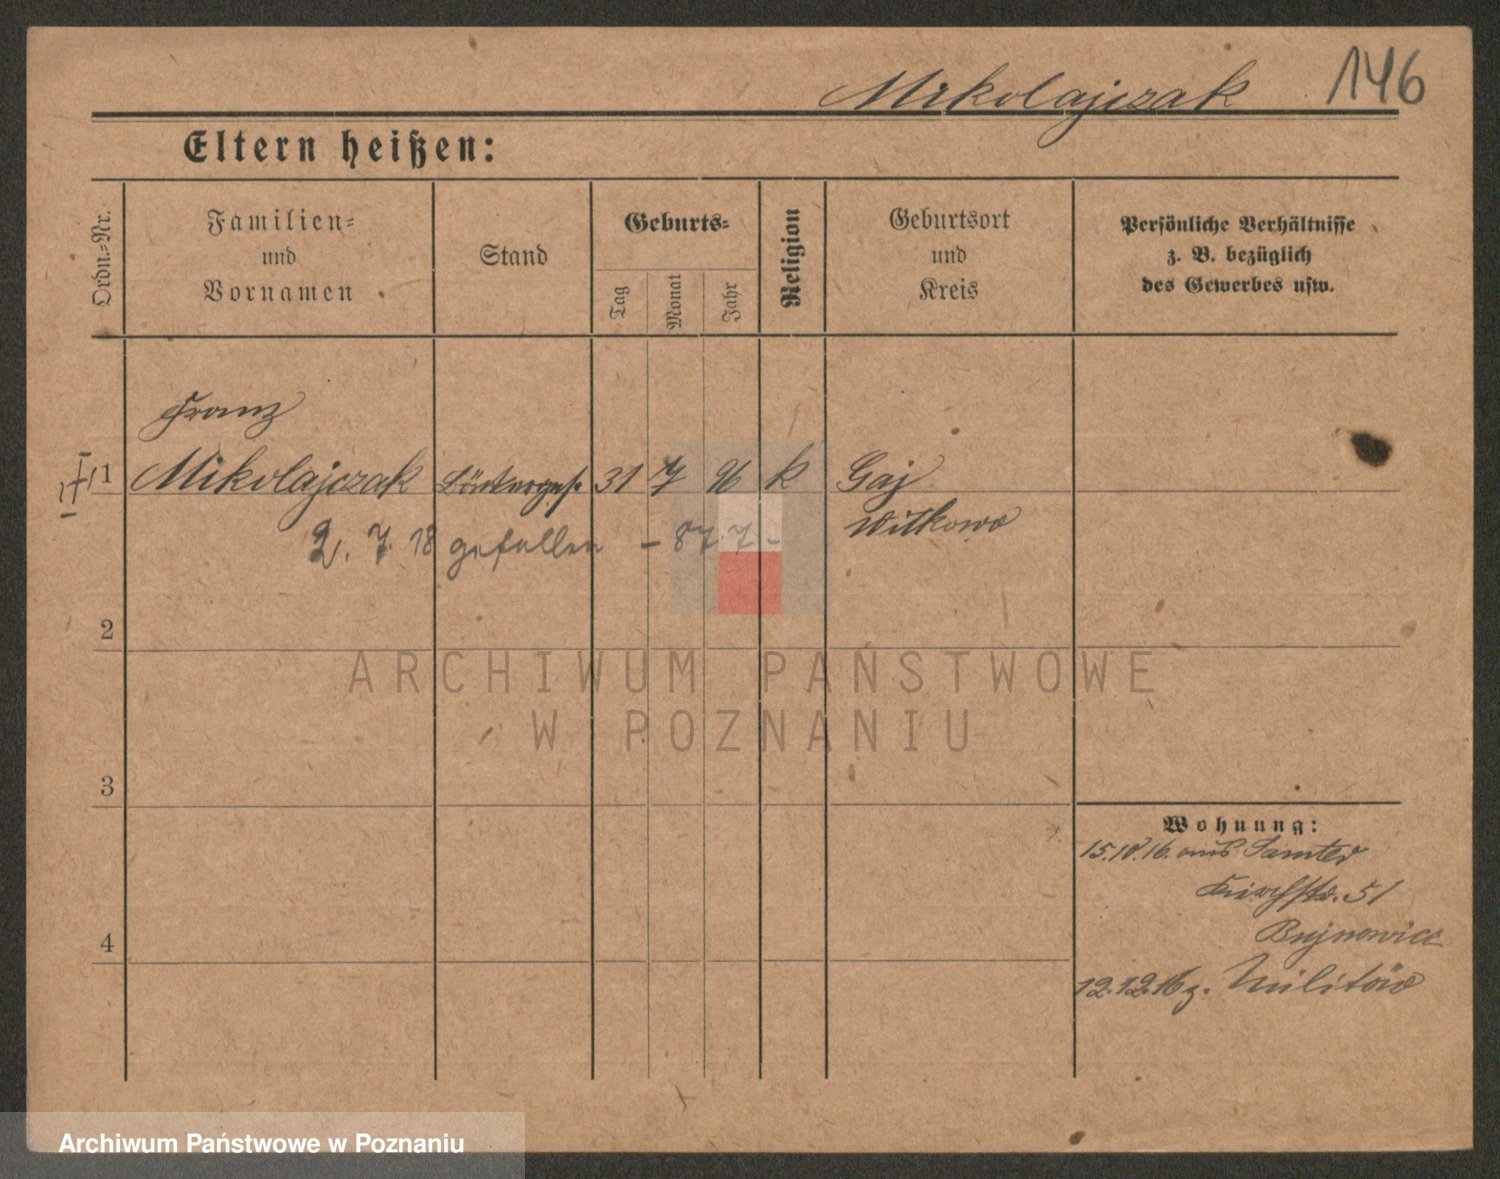 Mikolajczak 146
Eltern heißen:
Ordn.=Nr.
Familien=
und
Vornamen
Stand
Geburts=
Tag
Monat
Jahr
Religion
Geburtsort
und
Kreis
Persönliche Verhältnisse
z. B. bezüglich
des Gewerbes usw.
Franz
1 Mikolajczak 31 7 96 k Gaj
Witkowo
2. 7. 18 gefallen - 87.7 -
2
ARCHIWUM PAŃSTWOWE
W POZNANIU
3
Wohnung:
15.10.16. aus Samter
Kirchstr. 51
Bujnowicz
4
12.12.16 z. Militär
Archiwum Państwowe w Poznaniu